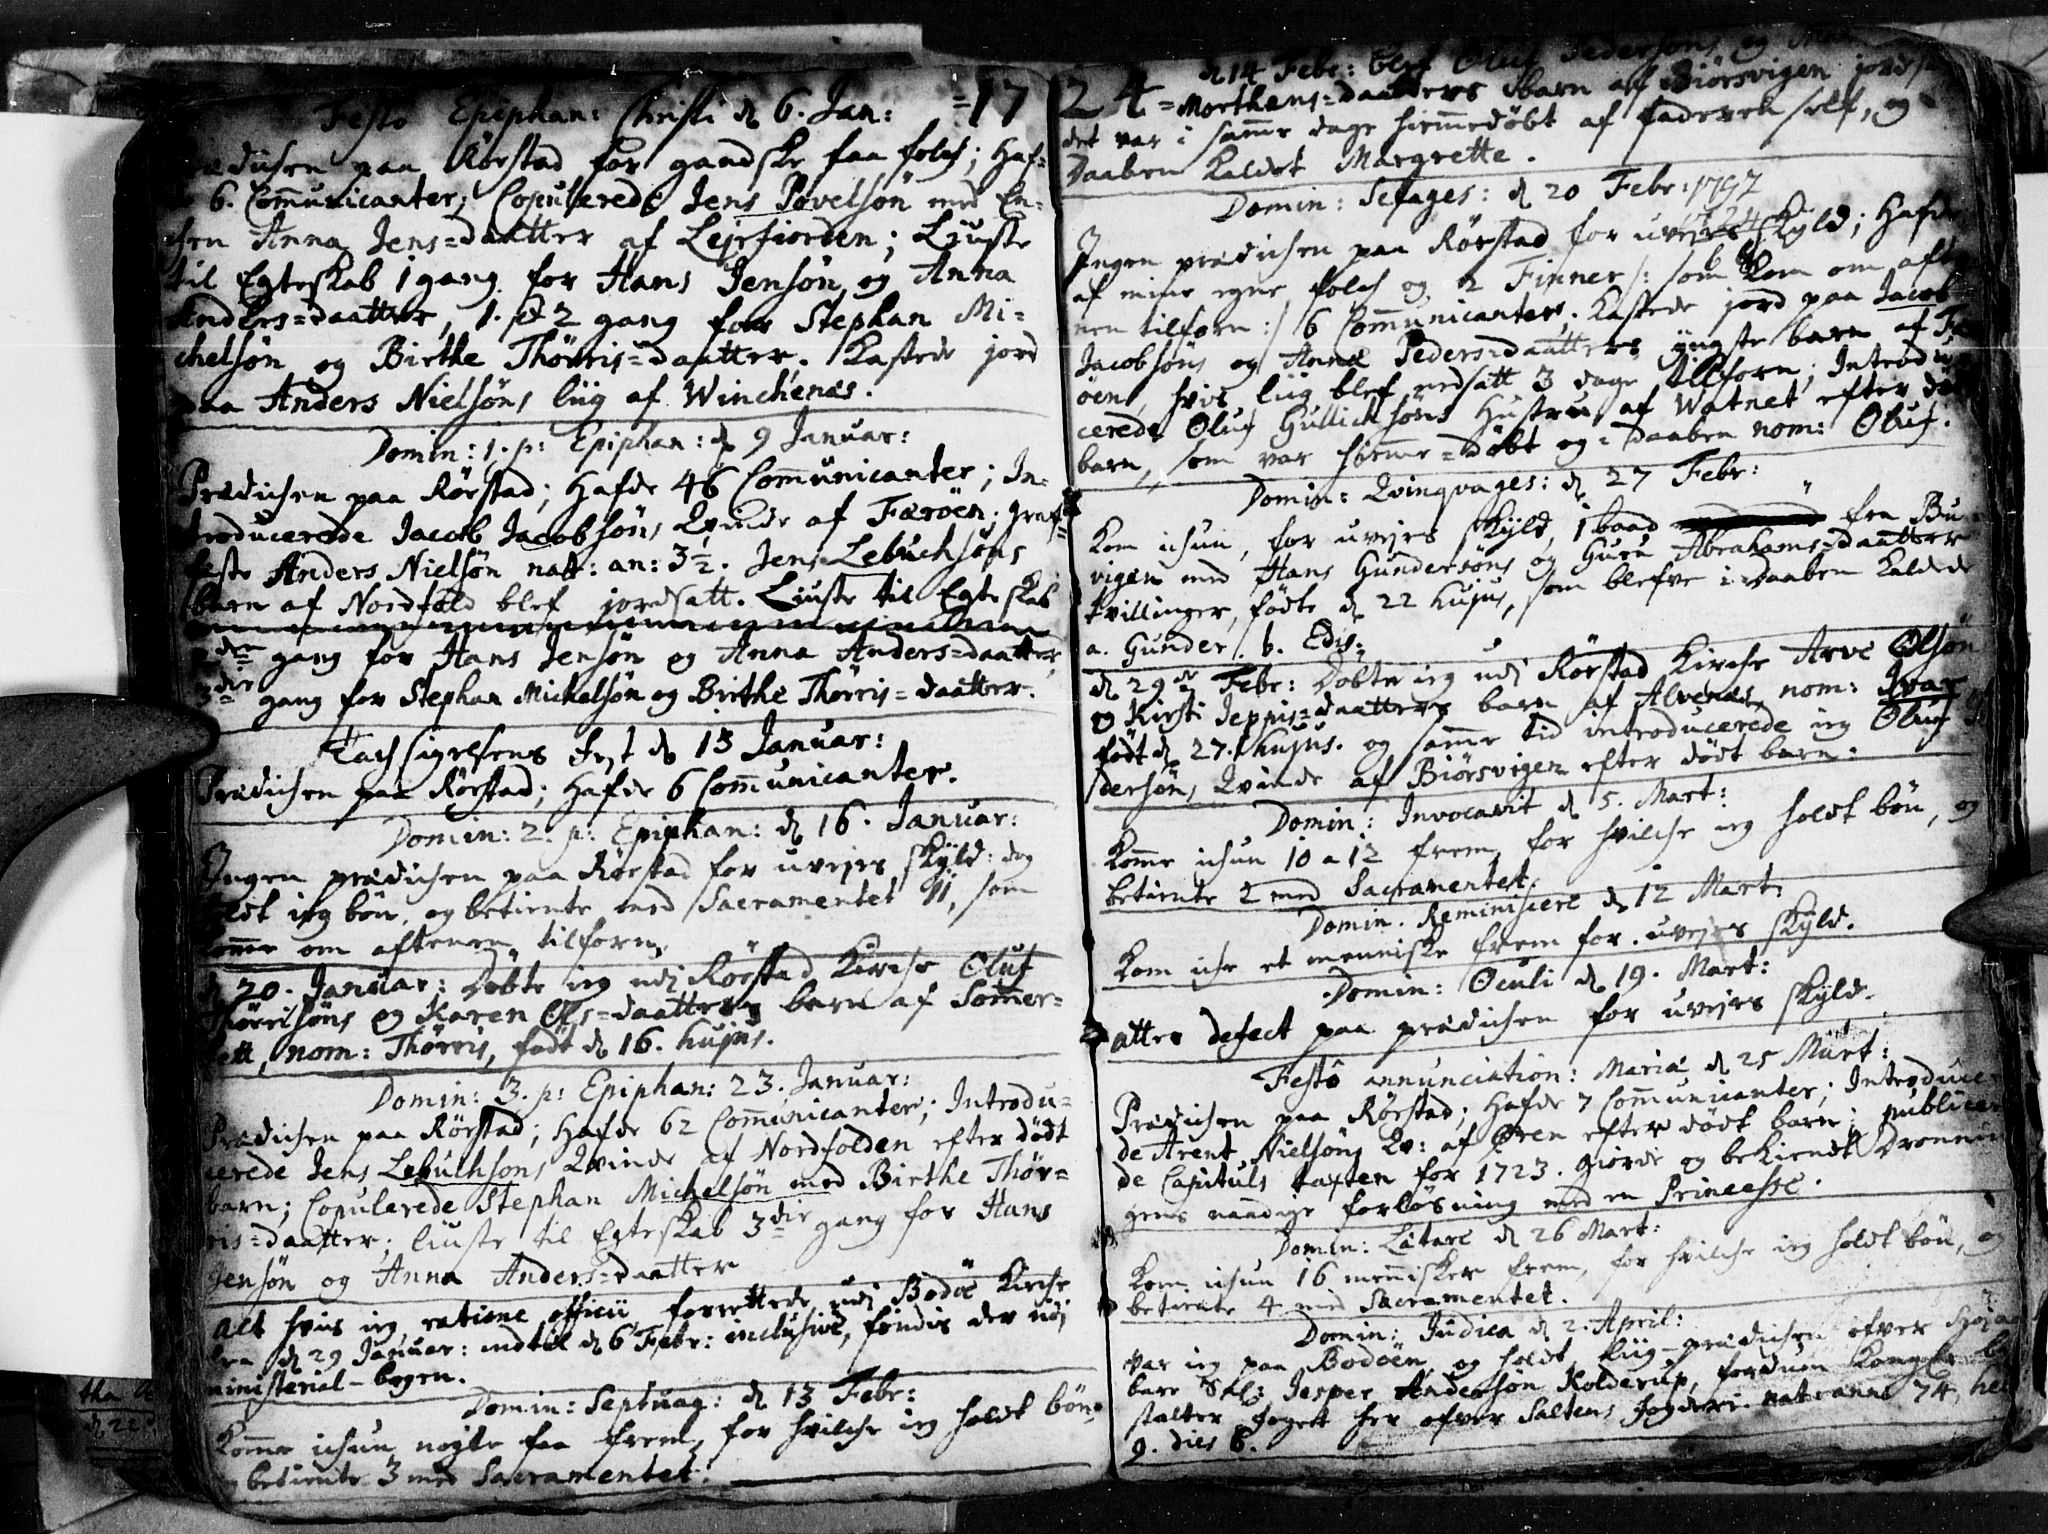 Festo Epiphan: Christi d 6. Jan: =17
Prædichen paa Rørstad for gandske faa folch; Haf=
6. Communicanter; Copulerede Jens Povelsøn med En=
chen Anna Jens=daatter af Lejrfiorden; Liuste
til Egteskab 1 gang for Hans Jensøn og Anna
Anders=daatter, 1. p 2 gang for Stephan Mi=
chelsøn og Birthe Thørris=daatter. Kastede jord
paa Anders Nielsøns liig af Winchenæs.
Domin: 1. p: Epiphan: d 9 Januar:
Prædichen paa Rørstad; Hafde 46 Communicanter; In=
troducerede Jacob Jacobsøns Qvinde af Færøen; Graf=
feste Anders Nielsøn nat: an: 3½. Jens Lebuchsøns
barn af Nordfold blef jordsatt. Liuste til Egteskab
2den gang for Hans Jensøn og Anna Anders=daatter,
3die gang for Stephan Michelsøn og Birthe Thørris=daatter.
Tachsigelsens fest d 13 Januar:
Prædichen paa Rørstad; Hafde 6 Communicanter.
Domin: 2. p: Epiphan: d 16. Januar:
Ingen prædichen paa Rørstad for uvejrs skyld: dog
holdt ieg bøn, og betiente med Sacramentet 11, som
komme om aftenen tilforn.
d 20. Januar: Døbte ieg udj Rørstad Kirche Oluf
Thørrisøns og Karen Ols=daatters barn af Sommer=
sett, nom: Thørris, født d 16. hujus.
Domin: 3. p: Epiphan: 23. Januar:
Prædichen paa Rørstad; Hafde 62 Communicanter; Introdu=
cerede Jens Lebuchsøns Qvinde af Nordfolden efter dødt
barn; Copulerede Stephan Michelsøn med Birthe Thør=
ris=daatter; liuste til Egteskab 3die gang for Hans
Jensøn og Anna Anders=daatter
Alt hvis ieg ratione officii forrettede udj Bodøe Kirche
fra d 29 Januar: indtil d 6 Febr: inclusive, findis der udj
ministerial-bogen.
Domin: Septuag: d 13 Febr:
Komme ichun nogle faa frem, for hvilche ieg holdt bøn,
og betiente 3 med Sacramentet.
24 = d 14 Febr: blef Oluf Pedersøns og
Morthens=daatters barn af Biørsvigen jordsat
det var i samme dage hiemmedøbt af faderen self, og
Daaben kaldet Margrette.
Domin: Sexages: d 20 Febr: 1797
1724
Ingen prædichen paa Rørstad for uvejrs skyld; Hafde
af mine egne folch og 2 Finner /: som kom om afte
nen tilforn :/ 6 Communicanter. Kastede jord paa Jacob
Jacobsøns og Anna Peders=daatters yngste barn af Fær
øen, hvis liig blef nedsatt 3 dage tilforn; Introdu
cerede Oluf Gullichsøns Hustru af Watnet efter dødt
barn, som var hiemme=døbt og i daaben nom: Oluf.
Domin: Qvinqvages: d 27 Febr:
Kom ichun, for uvejrs skyld, 1 baad fra Bu
vigen med Hans Gundersøns og Guru Abrahams=daatter
tvillinger, fødte d 22 hujus, som blefve i daaben kaldede
a. Gunder. b. Edis:
d 29de Febr: Døbte ieg udj Rørstad Kirche Arve Olsøn
og Kirsti Jeppis=daatters barn af Alvenæs, nom: Ivar,
født d 27. hujus. og samme tid introducerede ieg Oluf
dersøns Qvinde af Biørsvigen efter dødt barn:
Domin: Invocavit d 5. Mart:
Komme ichun 10 a 12 frem, for hvilche ieg holdt bøn, og
betiente 2 med Sacramentet.
Domin. Reminiscere d 12 Mart:
Kom iche et menniske frem for uvejrs skyld.
Domin: Oculi d 19. Mart:
atter defect paa prædichen for uvejrs skyld.
Festo annunciation: Mariæ d 25 Mart:
Prædichen paa Rørstad; Hafde 7 Communicanter; Introducere
de Arent Nielsøns Qv: af Øren efter dødt barn; publicer
de Capituls taxten for 1723. giorde og bekiendt Dronnin
gens naadige forløsning med en Princesse.
Domin: Lætare d 26 Mart:
Kom ichun 16 mennisker frem, for hvilche ieg holdt bøn, og
betiente 4 med Sacramentet.
Domin: Judica d 2. April:
Var ieg paa Bodøen og holdt liig-prædichen ofver Høja
bare Sal: Jesper Andersøn Kolderup, fordum Kongl:
stalter foget her ofver Saltens fogderi. nat: ann: 74,
9. dies 6.